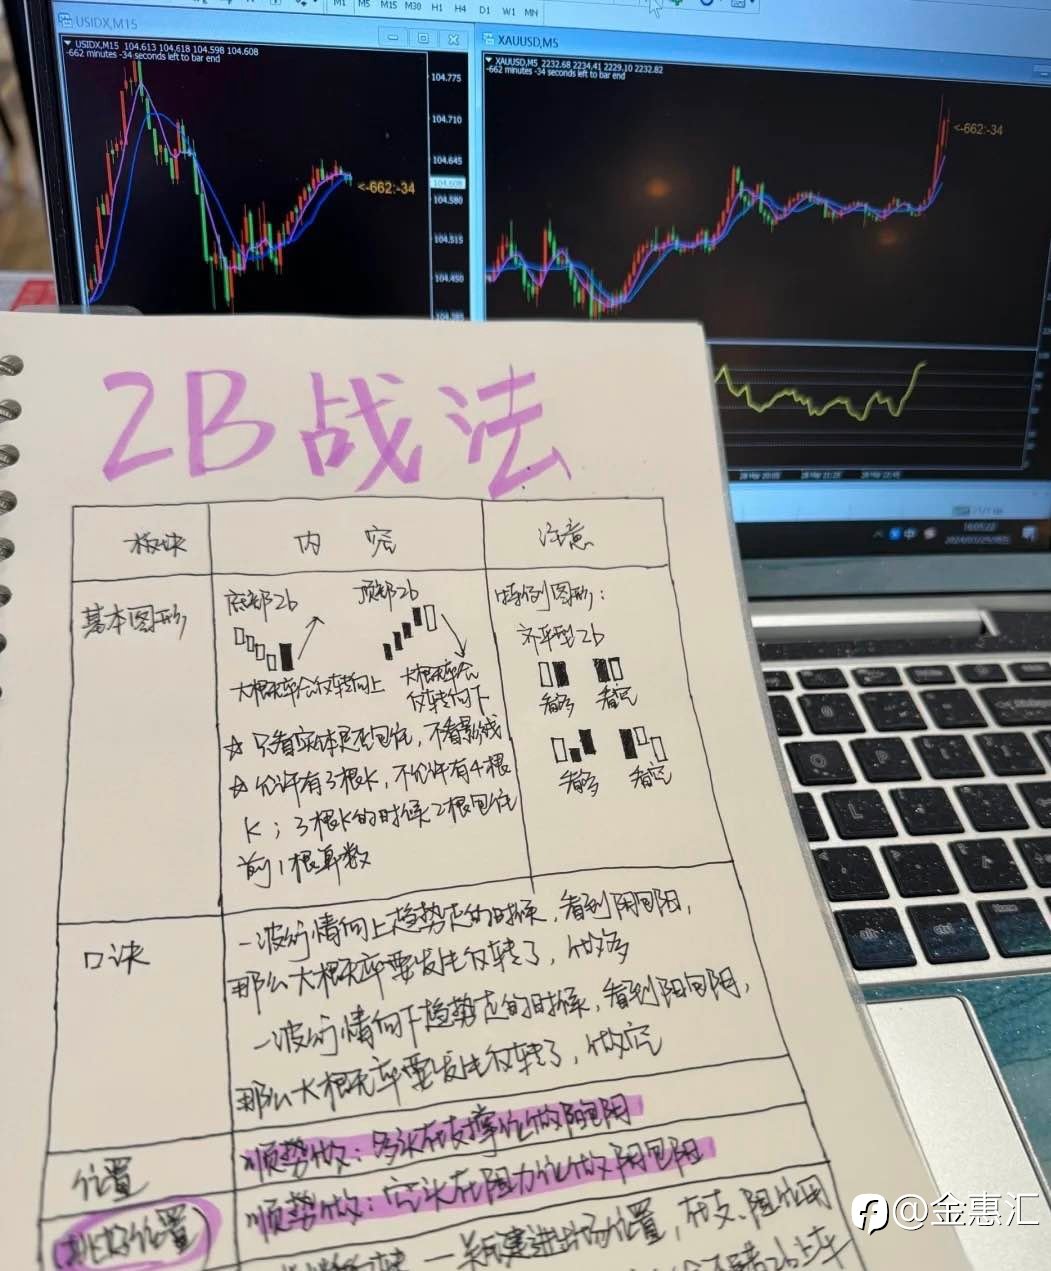 M1 M5 M15 M30 H1 H4 D1 W1 MN
USIDX,M15
USIDX,M15 104.613 104.618 104.598 104.608
-662 minutes -34 seconds left to bar end
104.775
104.710
104.645
104.608
104.580
104.515
104.450
104.385
<-662:-34
XAUUSD,M5
XAUUSD,M5 2232.68 2234.41 2229.10 2232.82
-662 minutes -34 seconds left to bar end
<-662:-34
2B战法
板块
内容
注意
基本图形
底部2b
顶部2b
大概率会反转向上
大概率会
反转向下
☆ 只看实体是否包住，不看影线
☆ 允许有3根K，不允许有4根
K；3根K的时候2根包住
前1根算数
特例图形：
齐平型2b
看多 看空
看多 看空
口诀
一波行情向上趋势走的时候，看到阴包阳，
那么大概率要发生反转了，做多
一波行情向下趋势走的时候，看到阳包阴，
那么大概率要发生反转了，做空
位置
顺势做：多头在支撑位做阳包阴
顺势做：空头在阻力位做阴包阳
进出场位置，在支、阻位用
@金惠汇